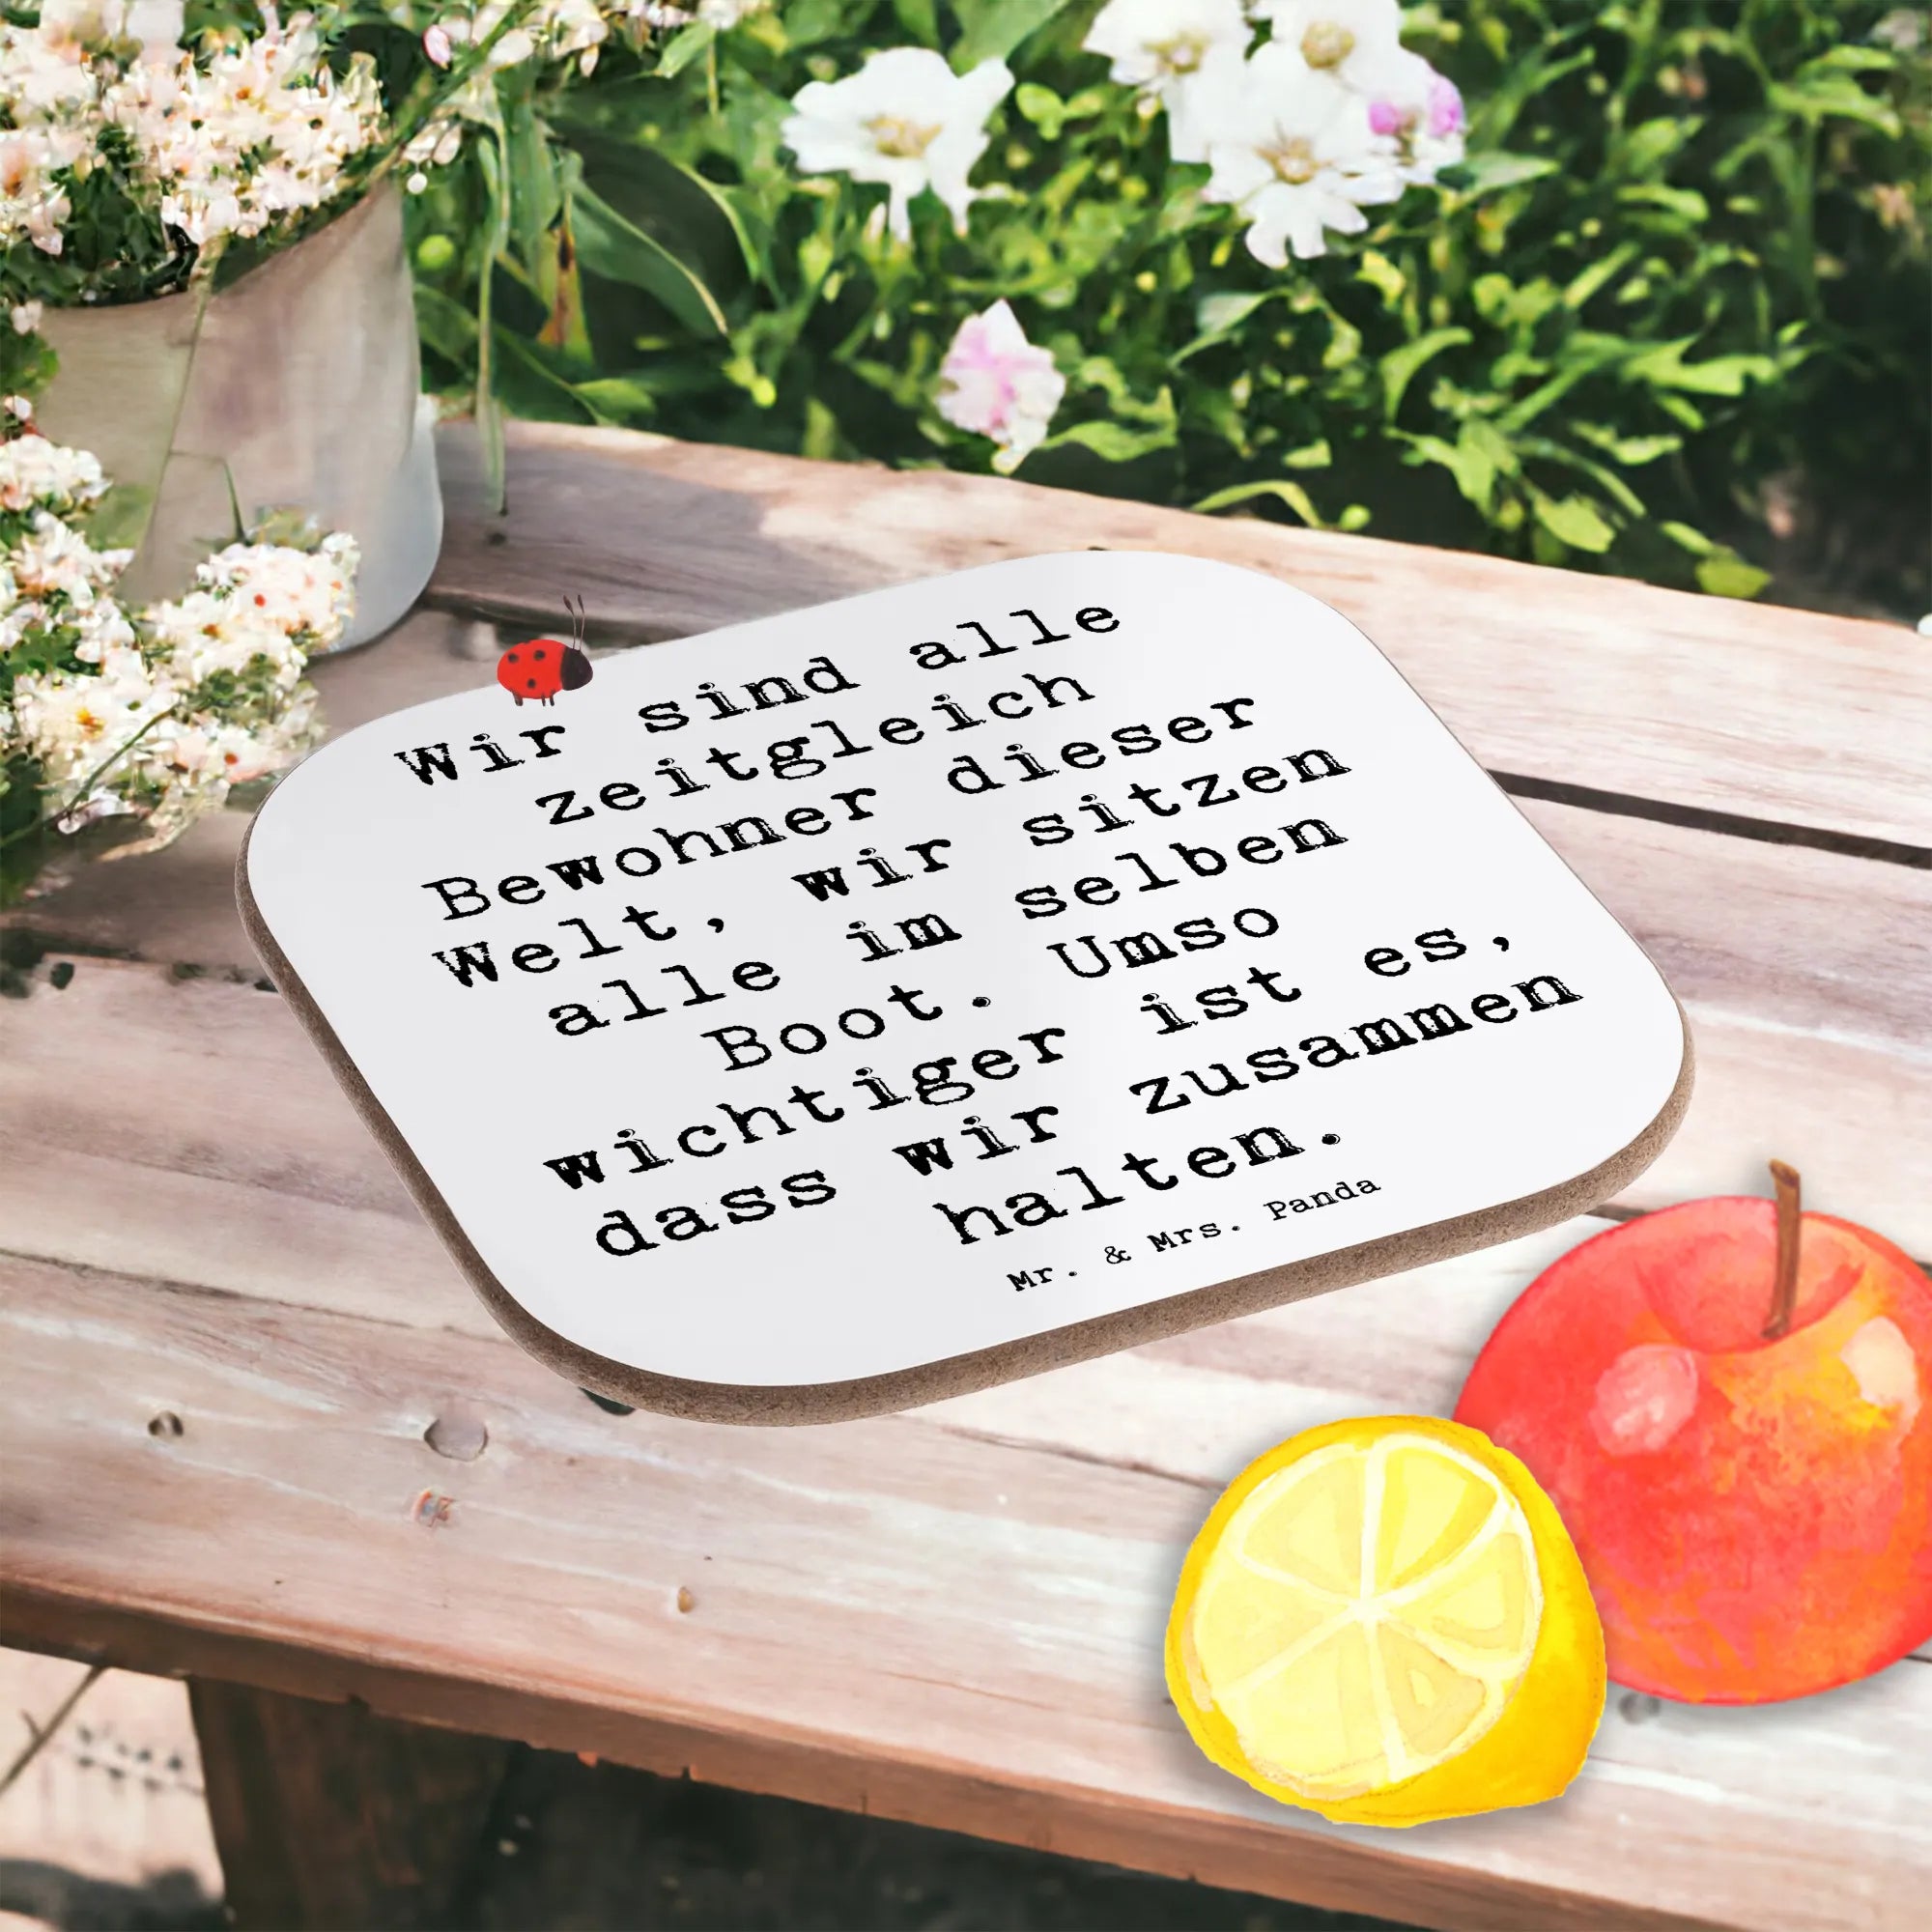 Wir sind alle
zeitgleich
Bewohner dieser
Welt, wir sitzen
alle im selben
Boot. Umso
wichtiger ist es,
dass wir zusammen
halten.
Mr. & Mrs. Panda